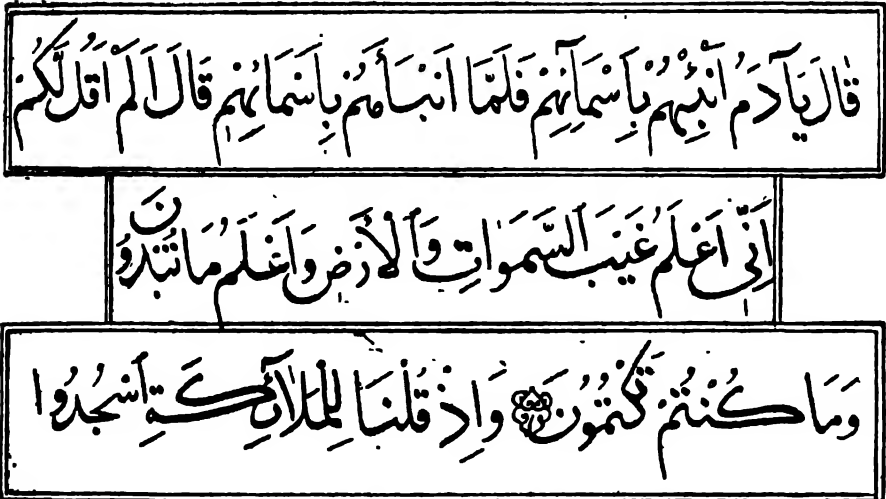 قَالَ يَآ اٰدَمُ اَنْبِئْهُمْ بِاَسْمَآئِهِمْ فَلَمَّا اَنْبَأَهُمْ بِاَسْمَائِهِمْ قَالَ اَلَمْ اَقُلْ لَكُمْ
اِنِّى اَعْلَمُ غَيْبَ السَّمَوَاتِ وَالْأَرْضِ وَاَعْلَمُ مَا تُبْدُونَ
وَمَا كُنْتُمْ تَكْتُمُونَ وَاِذْ قُلْنَا لِلْمَلَآئِكَةِ اسْجُدُوا